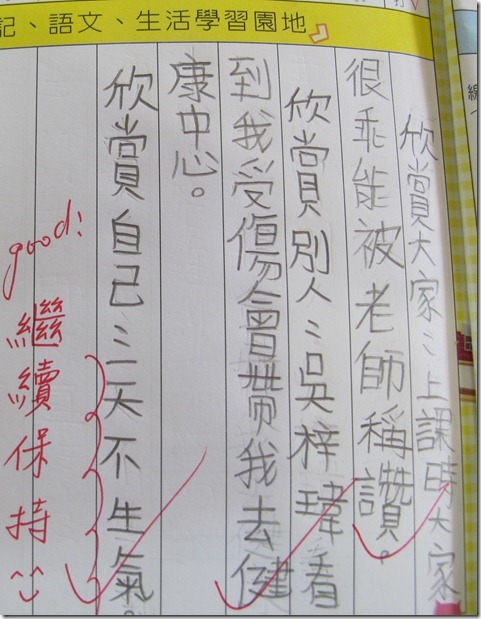 記、語文、生活學習園地
欣賞大家：上課時大家
很乖能被老師稱讚。
欣賞別人：吳梓瑋看
到我受傷會帶我去健
康中心。
欣賞自己：三天不生氣。
good!
繼續保持